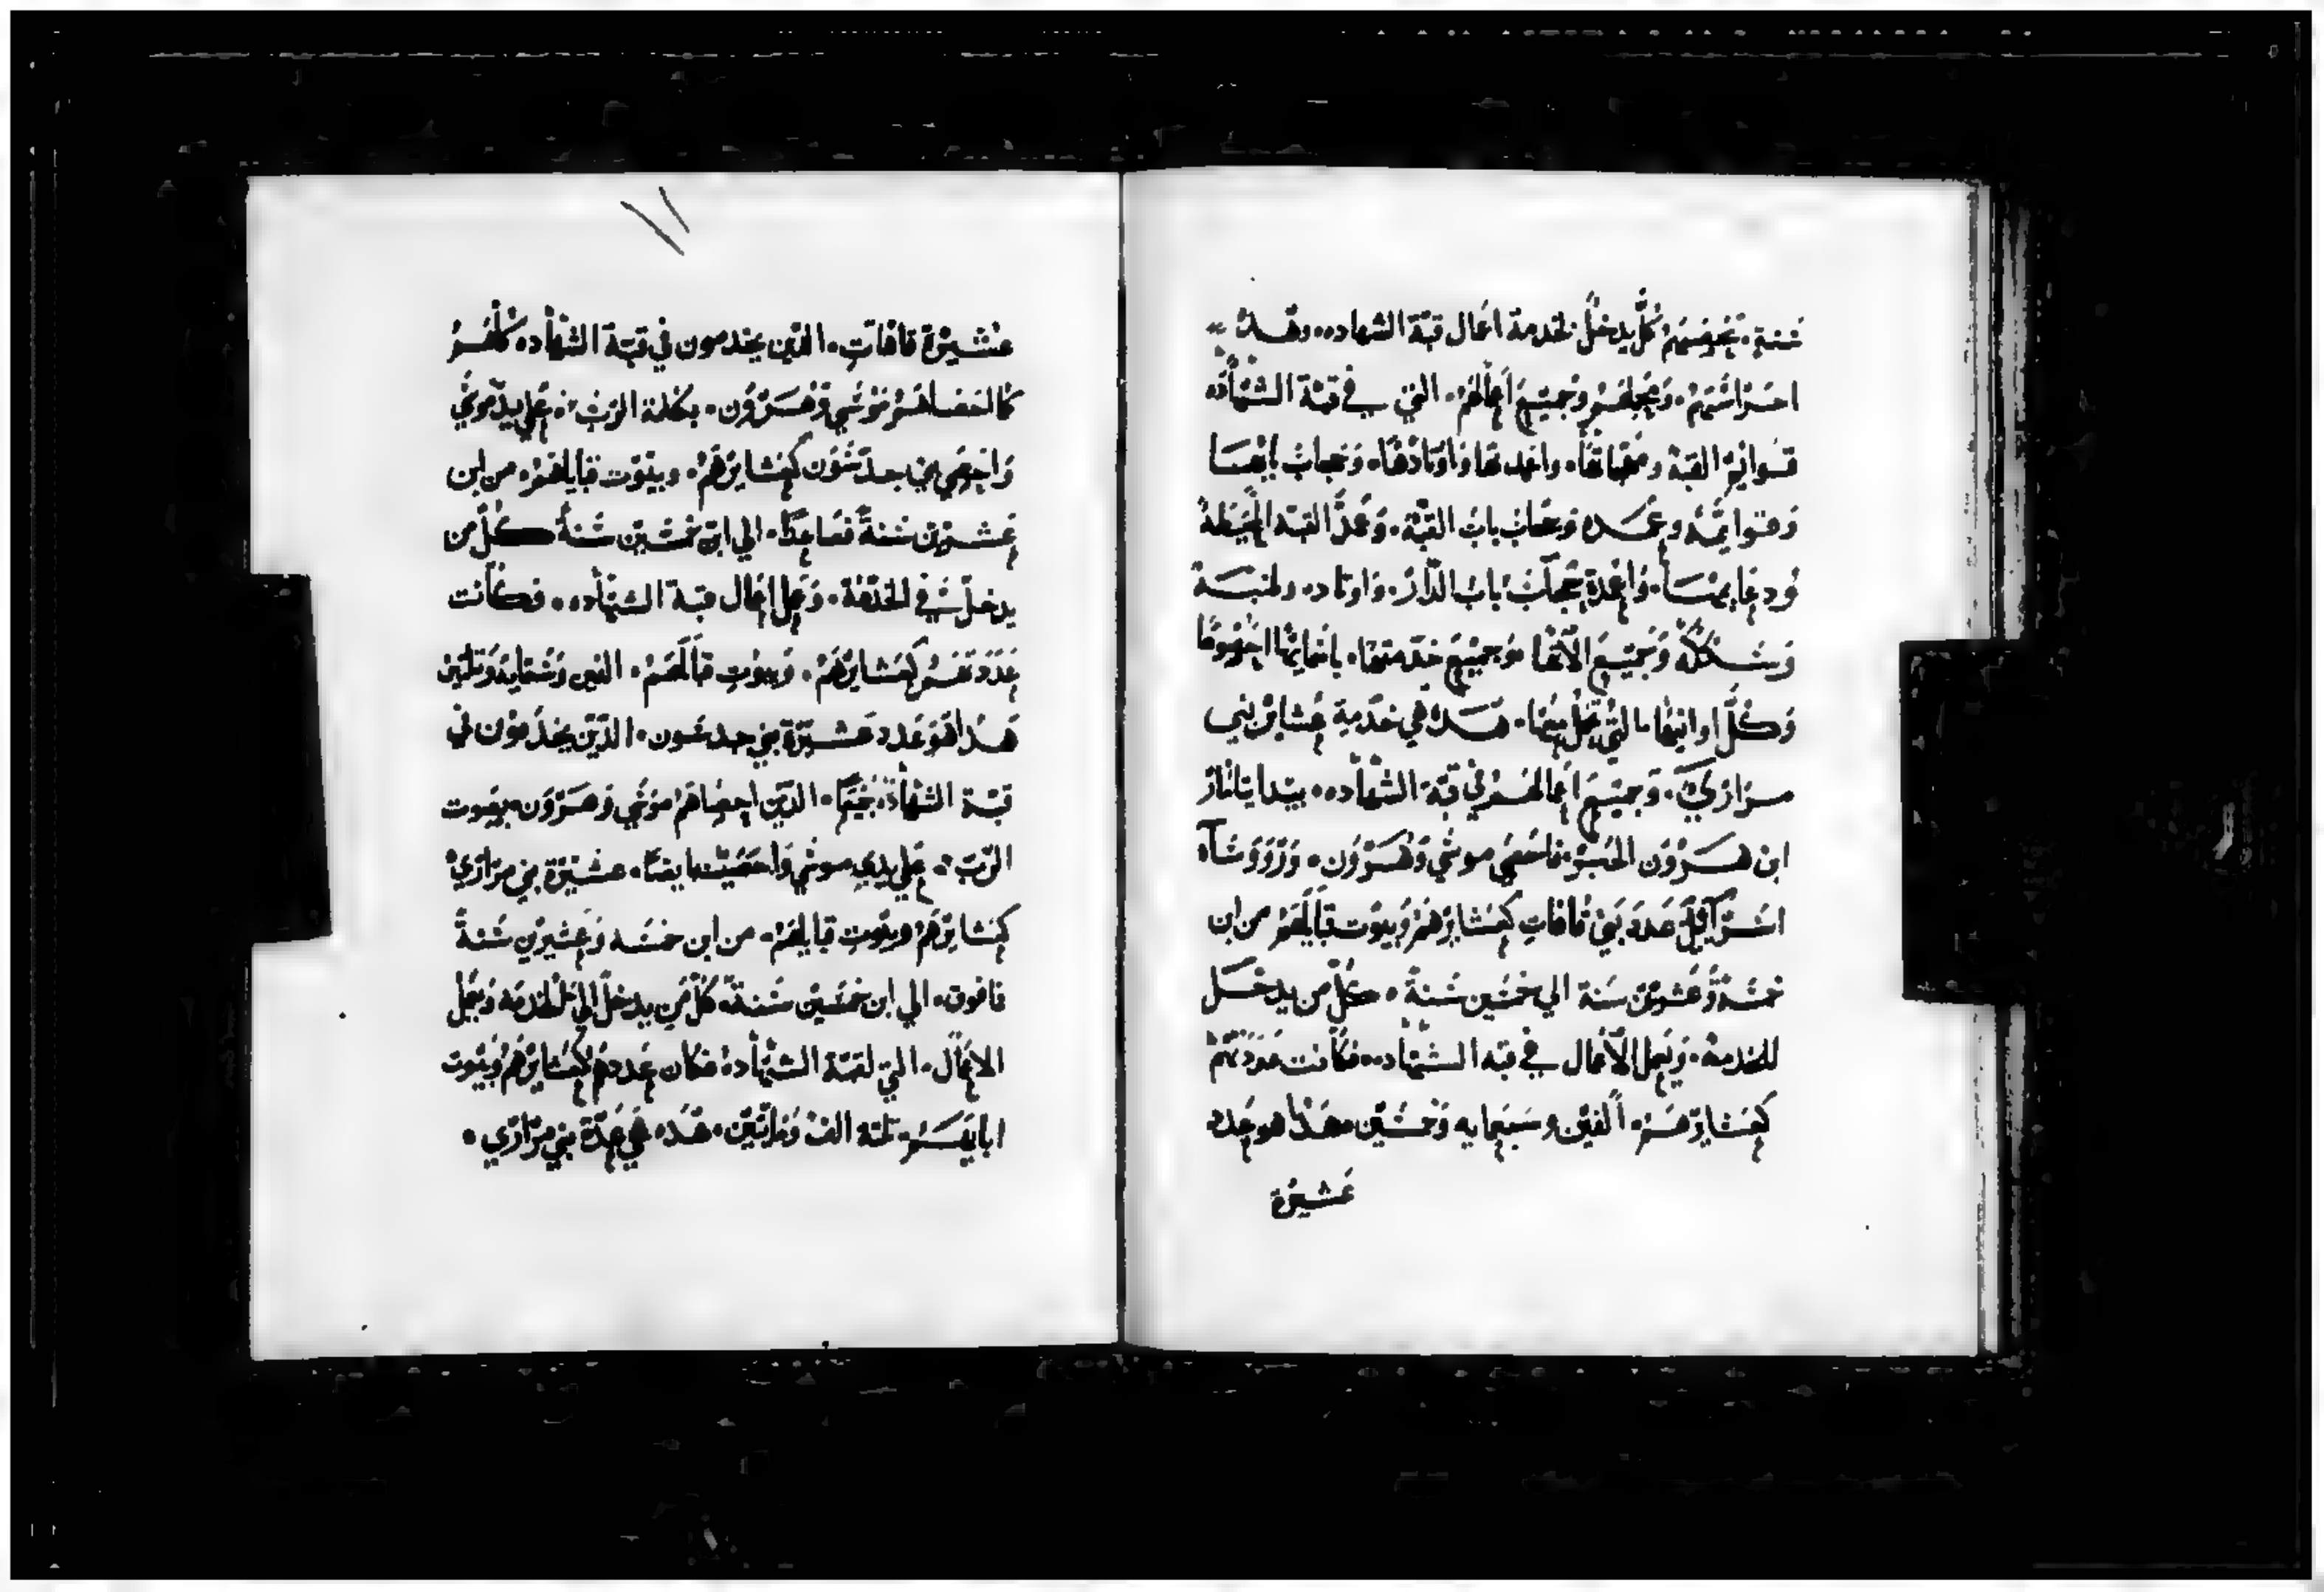 سنة. تحصيهم كل يدخل لخدمة اعمال قبة الشهاده. وهده
احتراسهم. ومحملهم وجميع اعمالهم. التي في قبة الشهاده
قوايم القبة ومتهاتها. واعمدتها واوتادها. وحجاب ايضا
وقوايمه وعمده وحجاب باب القبة. وعمد القبه المحيطة
ودعايمها. واعمدة حجاب باب الدار. واوتاده ولخبة
وشكله وجميع الاتها وجميع خدمتها. باسمايها احصوها
وكل اوانيها التي تحمل منها. هده هي خدمة عشاير بني
مراري. وجميع اعمالهم في قبة الشهاده. بيد ايتامار
ابن هرون الحبر. فاحصي موسي وهرون. وروسآ
اسرآيل عدد بني قاقات كعشايرهم وبيوت قبايلهم من ابن
خمسة وعشرين سنة الي خمسين سنة. كل من يدخل
للخدمة. ويعمل الاعمال في قبه الشهاده. فكانت عددتهم
كعشايرهم. الفين وسبعمايه وخمسين. هدا هو عدد
عشيرة
عشيرة قاقات. الدين يخدمون في قبة الشهاده. كلهم
كما احصاهم موسي وهرون. بكلمة الرب. علي يد موسي
واحصي بني جدشون كعشايرهم. وبيوت قبايلهم. من ابن
عشرين سنة فصاعدا. الي ابن خمسين سنة كل من
يدخل في الخدمة. وعمل اعمال قبة الشهاده. وكانت
عددتهم كعشايرهم. وبيوت قبالهم. الفين وستمايه وتلتين
هدا هو عدد عشيرة بني جدعون. الدين يخدمون في
قبة الشهادة جميعا. الدين احصاهم موسي وهرون بصوت
الرب. علي يدي موسي واحصيت ايضا. عشيرة بني مراري
كعشايرهم وبيوت قبايلهم. من ابن خمسه وعشرين سنة
فافوق. الي ابن خمسين سنة. كل من يدخل الي الخدمة ويعمل
الاعمال. التي لقبة الشهاده فكان عددهم كعشايرهم وبيوت
ابايهم. تلته الف ومايتين. هده هي عدة بني مراري.